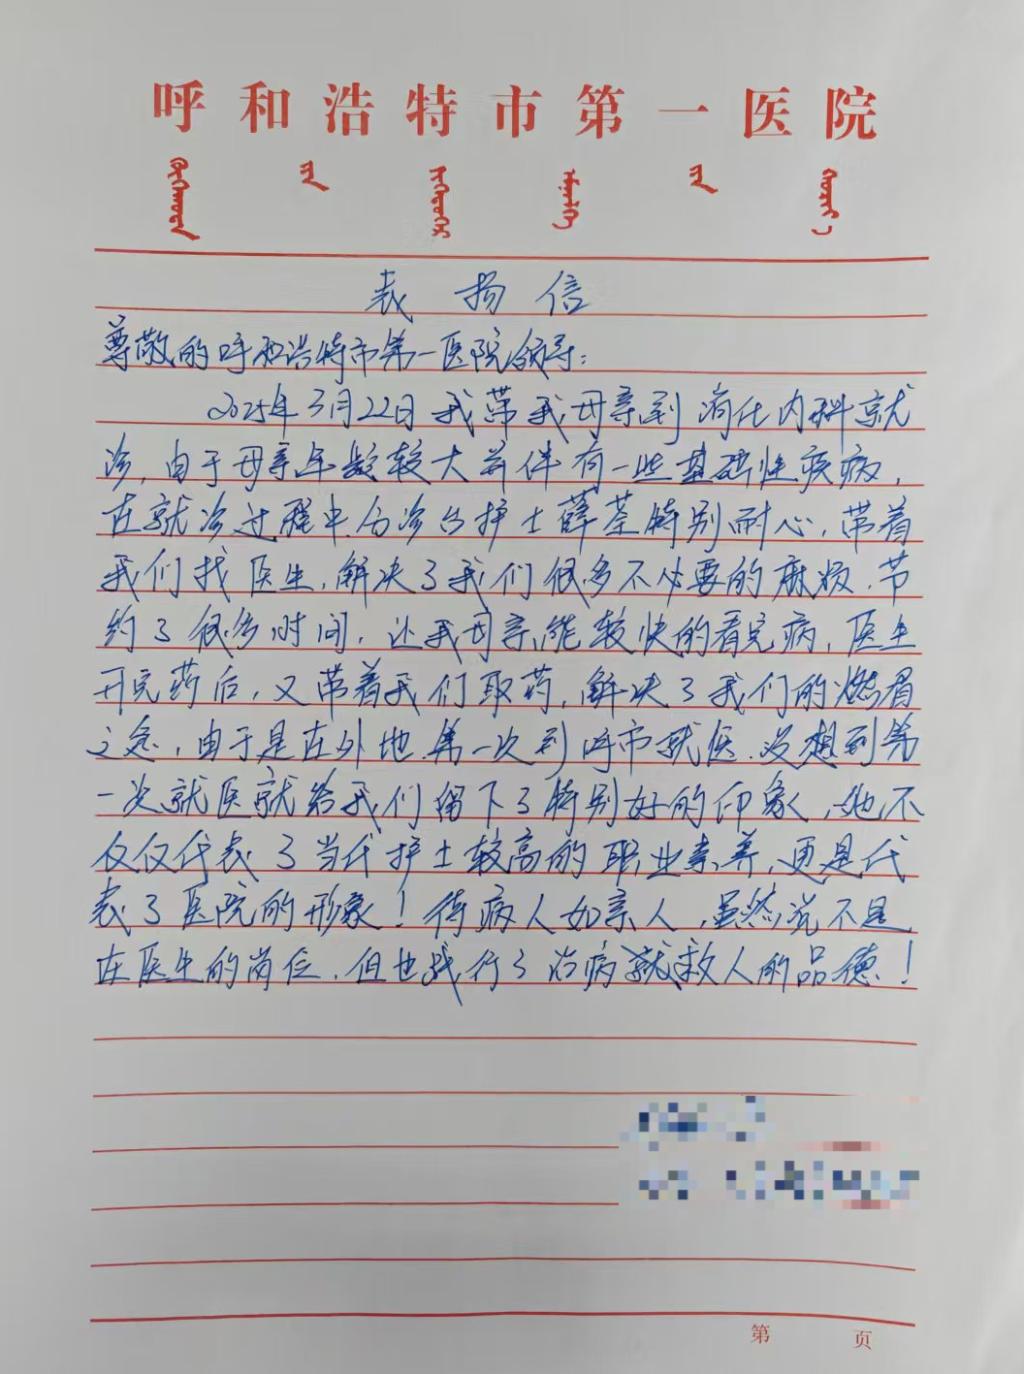 呼和浩特市第一医院
表扬信
尊敬的呼和浩特市第一医院领导：
2025年3月22日我带我母亲到消化内科就
诊，由于母亲年龄较大并伴有一些基础性疾病，
在就诊过程中分诊的护士薛荃特别耐心，带着
我们找医生，解决了我们很多不必要的麻烦，节
约了很多时间，让我母亲能较快的看完病，医生
开完药后，又带着我们取药，解决了我们的燃眉
之急，由于是在外地，第一次到呼市就医，没想到第
一次就医就给我们留下了特别好的印象，她不
仅仅代表了当代护士较高的职业素养，更是代
表了医院的形象！待病人如亲人，虽然说不是
在医生的岗位，但也践行了治病就救人的品德！
第 页